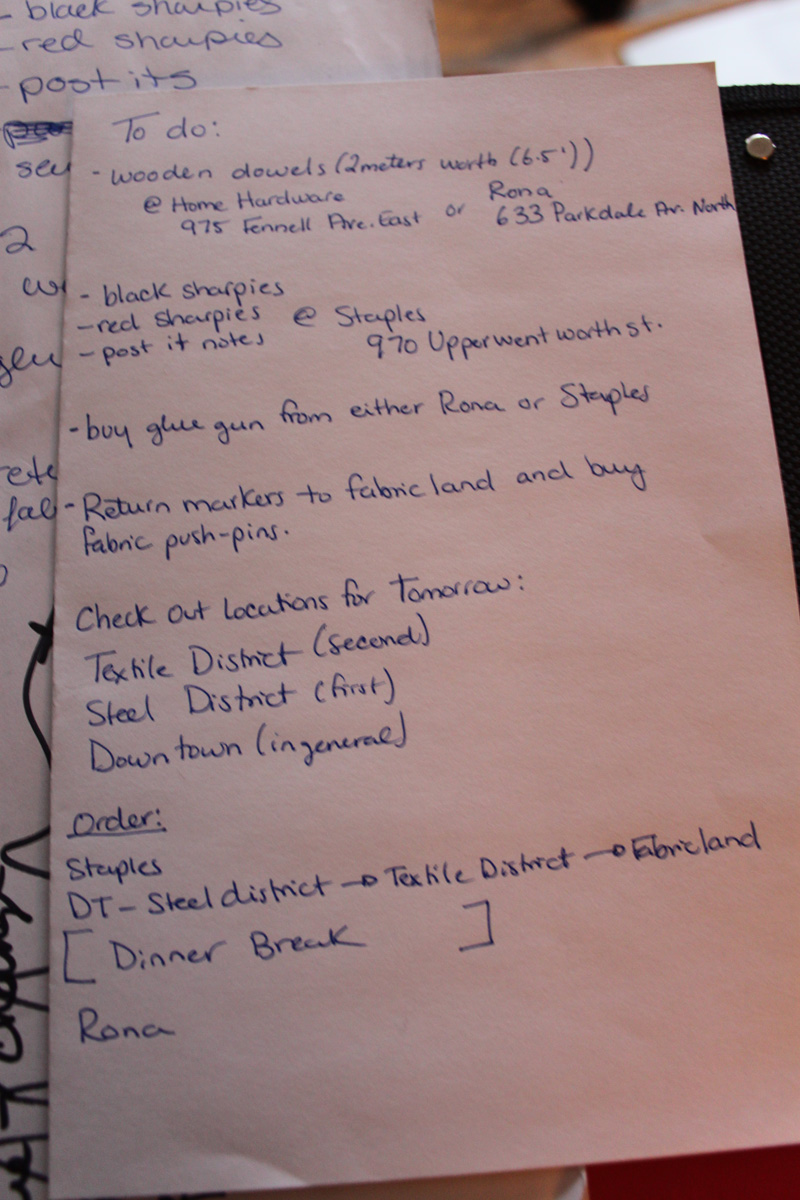 - black sharpies
- red sharpies
- post its
To do:
- wooden dowels (2 meters worth (6.5'))
@ Home Hardware or Rona
975 Fennell Ave. East 633 Parkdale Av. North
- black sharpies
- red sharpies @ Staples
- post it notes 970 Upperwentworth st.
- buy glue gun from either Rona or Staples
- Return markers to fabricland and buy
fabric push-pins.
Check out locations for Tomorrow:
Textile District (second)
Steel District (first)
Downtown (in general)
Order:
Staples
DT - Steel district → Textile District → Fabricland
[ Dinner Break ]
Rona